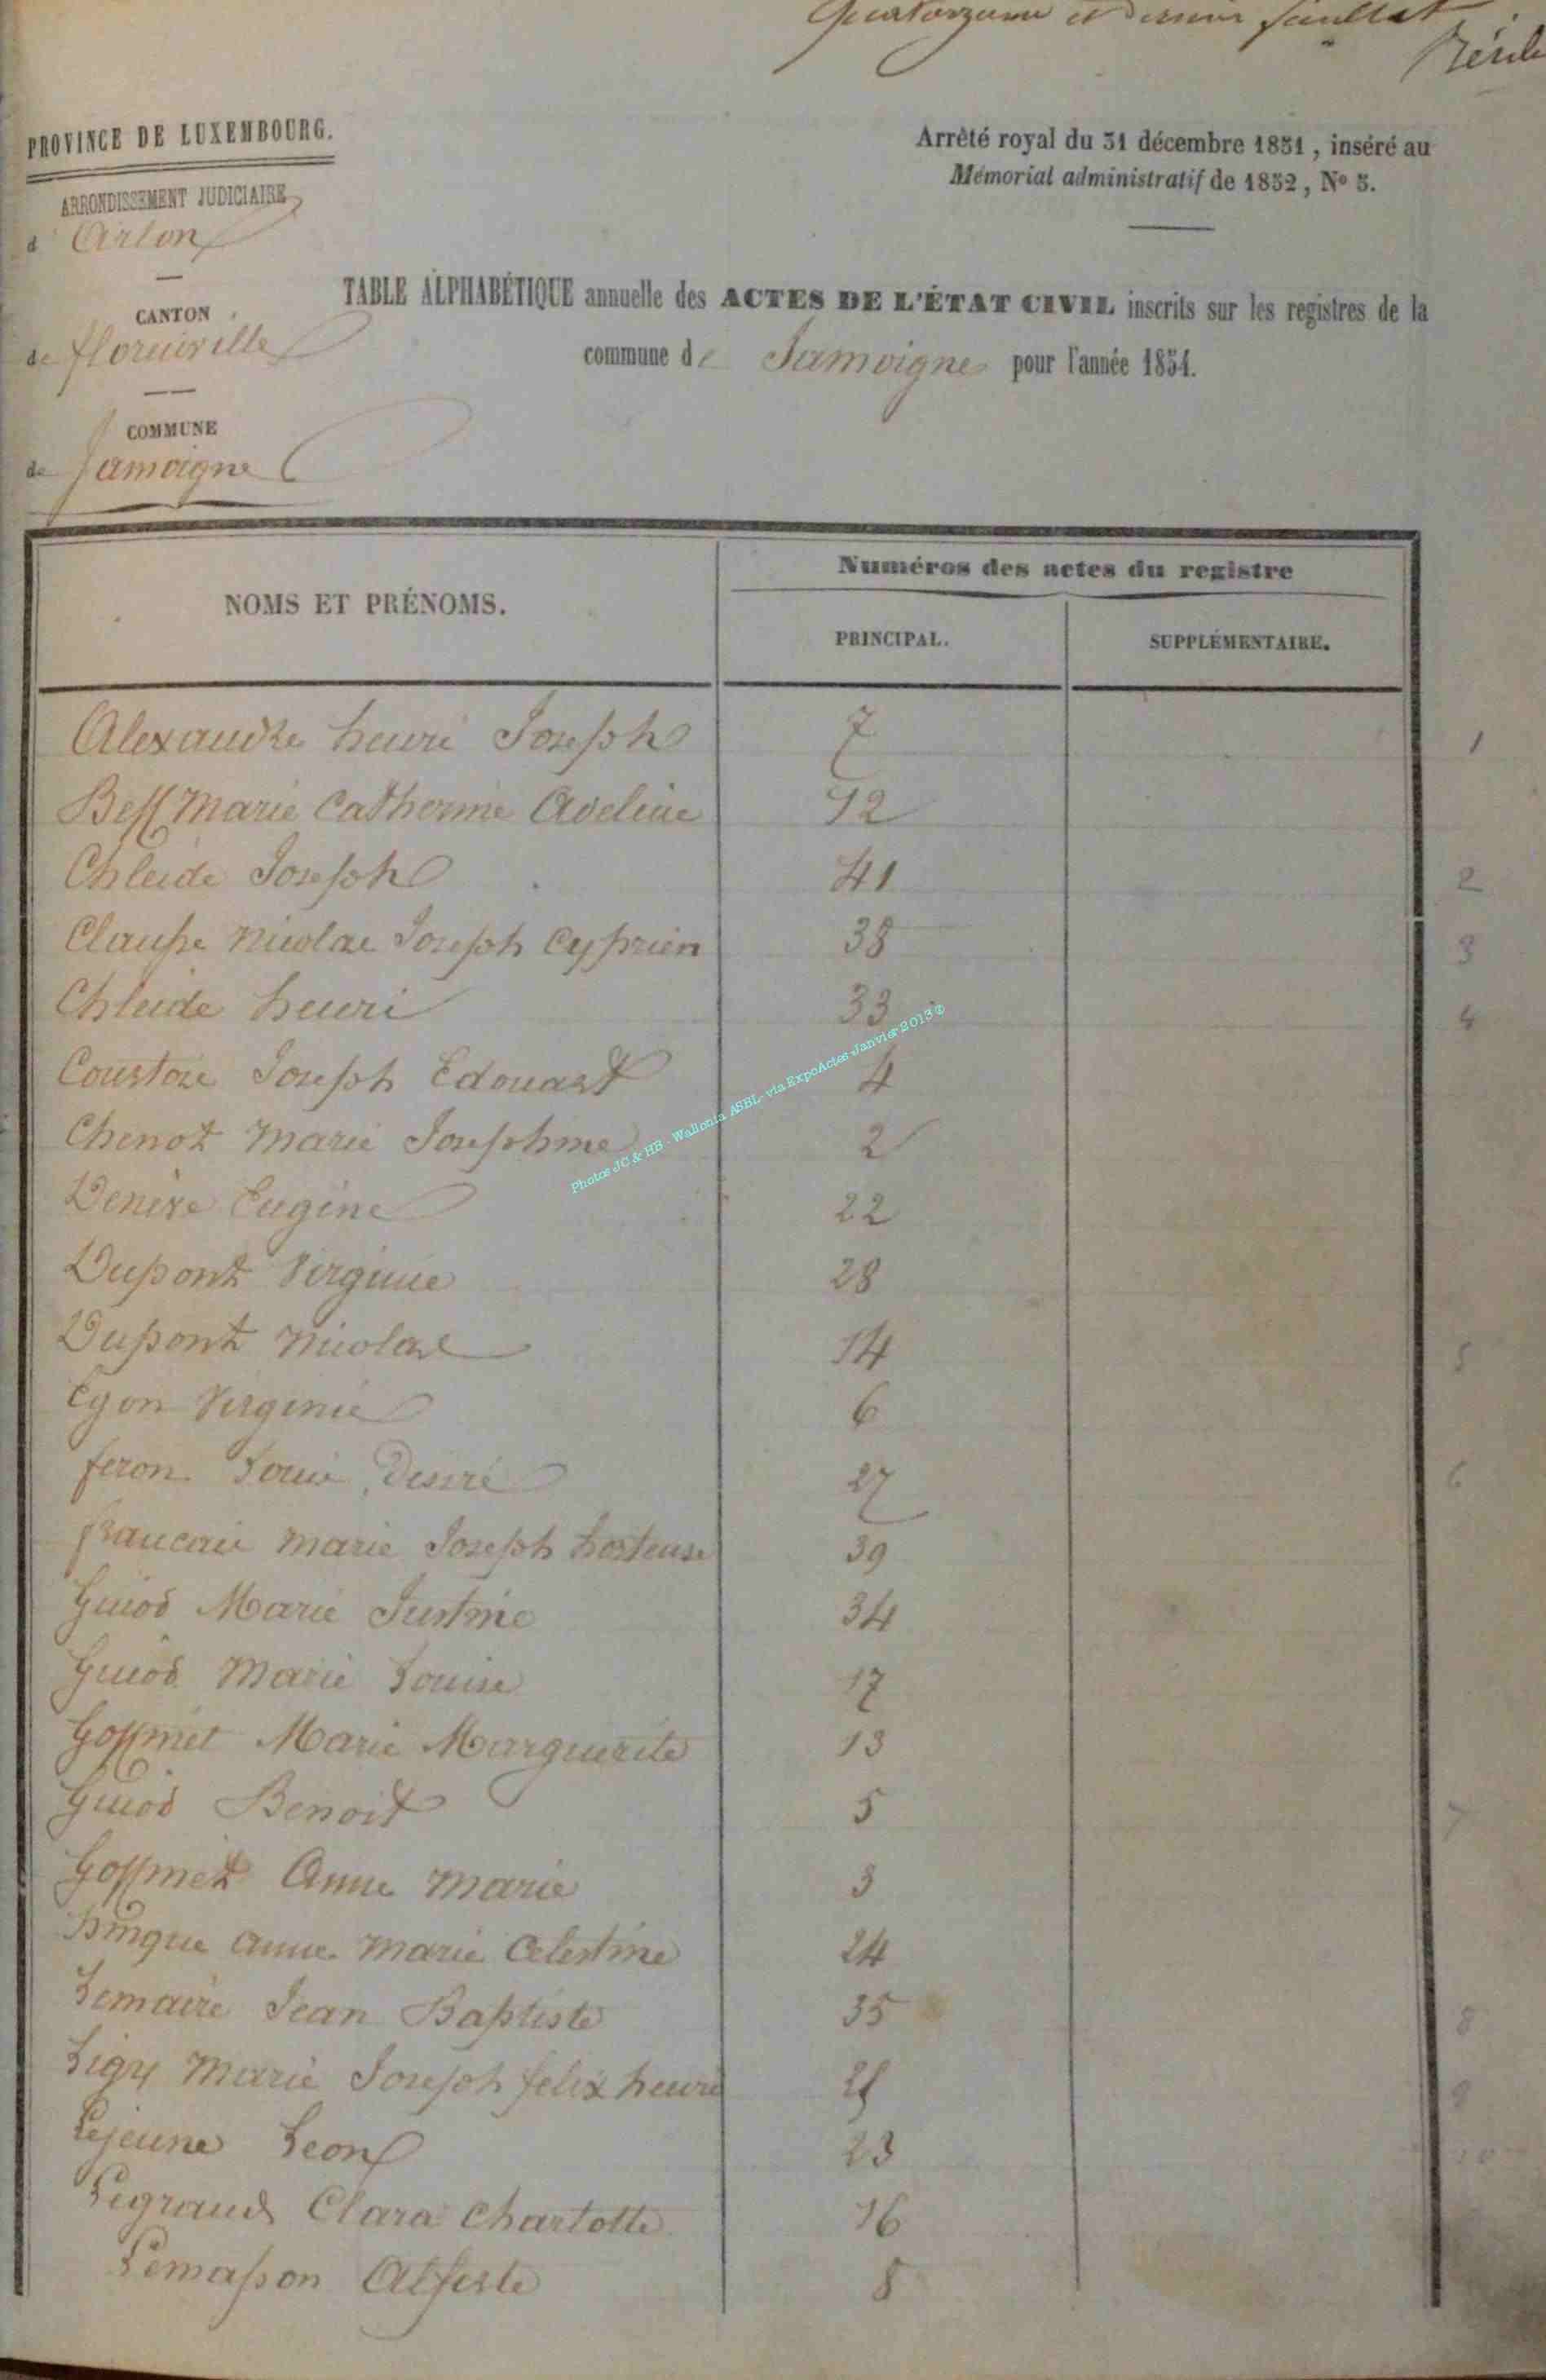 Quatorzieme et dernier feuillet
PROVINCE DE LUXEMBOURG.
ARRONDISSEMENT JUDICIAIRE
d' Arlon
CANTON
de florenville
COMMUNE
de Jamoigne
Arrêté royal du 31 décembre 1851, inséré au
Mémorial administratif de 1852, No 5.
TABLE ALPHABÉTIQUE annuelle des ACTES DE L'ÉTAT CIVIL inscrits sur les registres de la
commune de Jamoigne pour l'année 1854.
NOMS ET PRÉNOMS.
Numéros des actes du registre
PRINCIPAL.
SUPPLÉMENTAIRE.
Alexandre henri Joseph 7 1
Bess Marie Catherine Adeline 12
Chleide Joseph 41 2
Clausse Nicolas Joseph Cyprien 38 3
Chleide henri 33 4
Joseph Edouard 4
Chenot Marie Josephine 2
Eugène 22
Dupont Virginie 28
Dupont Nicolas 14 5
Egon Virginie 6
feron Louis Desiré 27 6
francois marie Joseph hortense 39
Guiod Marie Justine 34
Guiod Marie Louise 17
Goffinet Marie Marguerite 13
Guiod Benoit 5 7
Goffinet Anne Marie 3
anne marie Celestine 24
Lemaire Jean Baptiste 35 8
Ligy Marie Joseph felix henri 21 9
Lejeune Leon 23 10
Legrand Clara Charlotte 16
Lemasson 8
Photos JC & HB - Wallonia ASBL - via ExpoActes Janvier 2013 ©